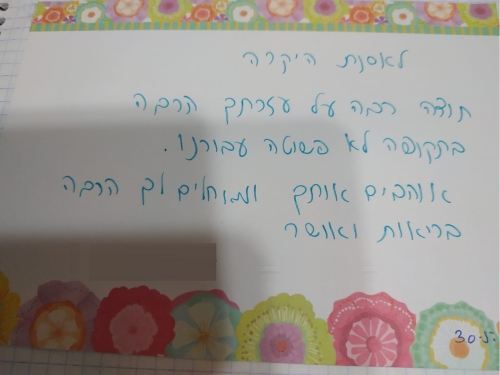 לאסנת היקרה
תודה רבה על עזרתך הרבה
בתקופה לא פשוטה עבורנו.
אוהבים אותך ומאחלים לך הרבה
בריאות ואושר
30.5.